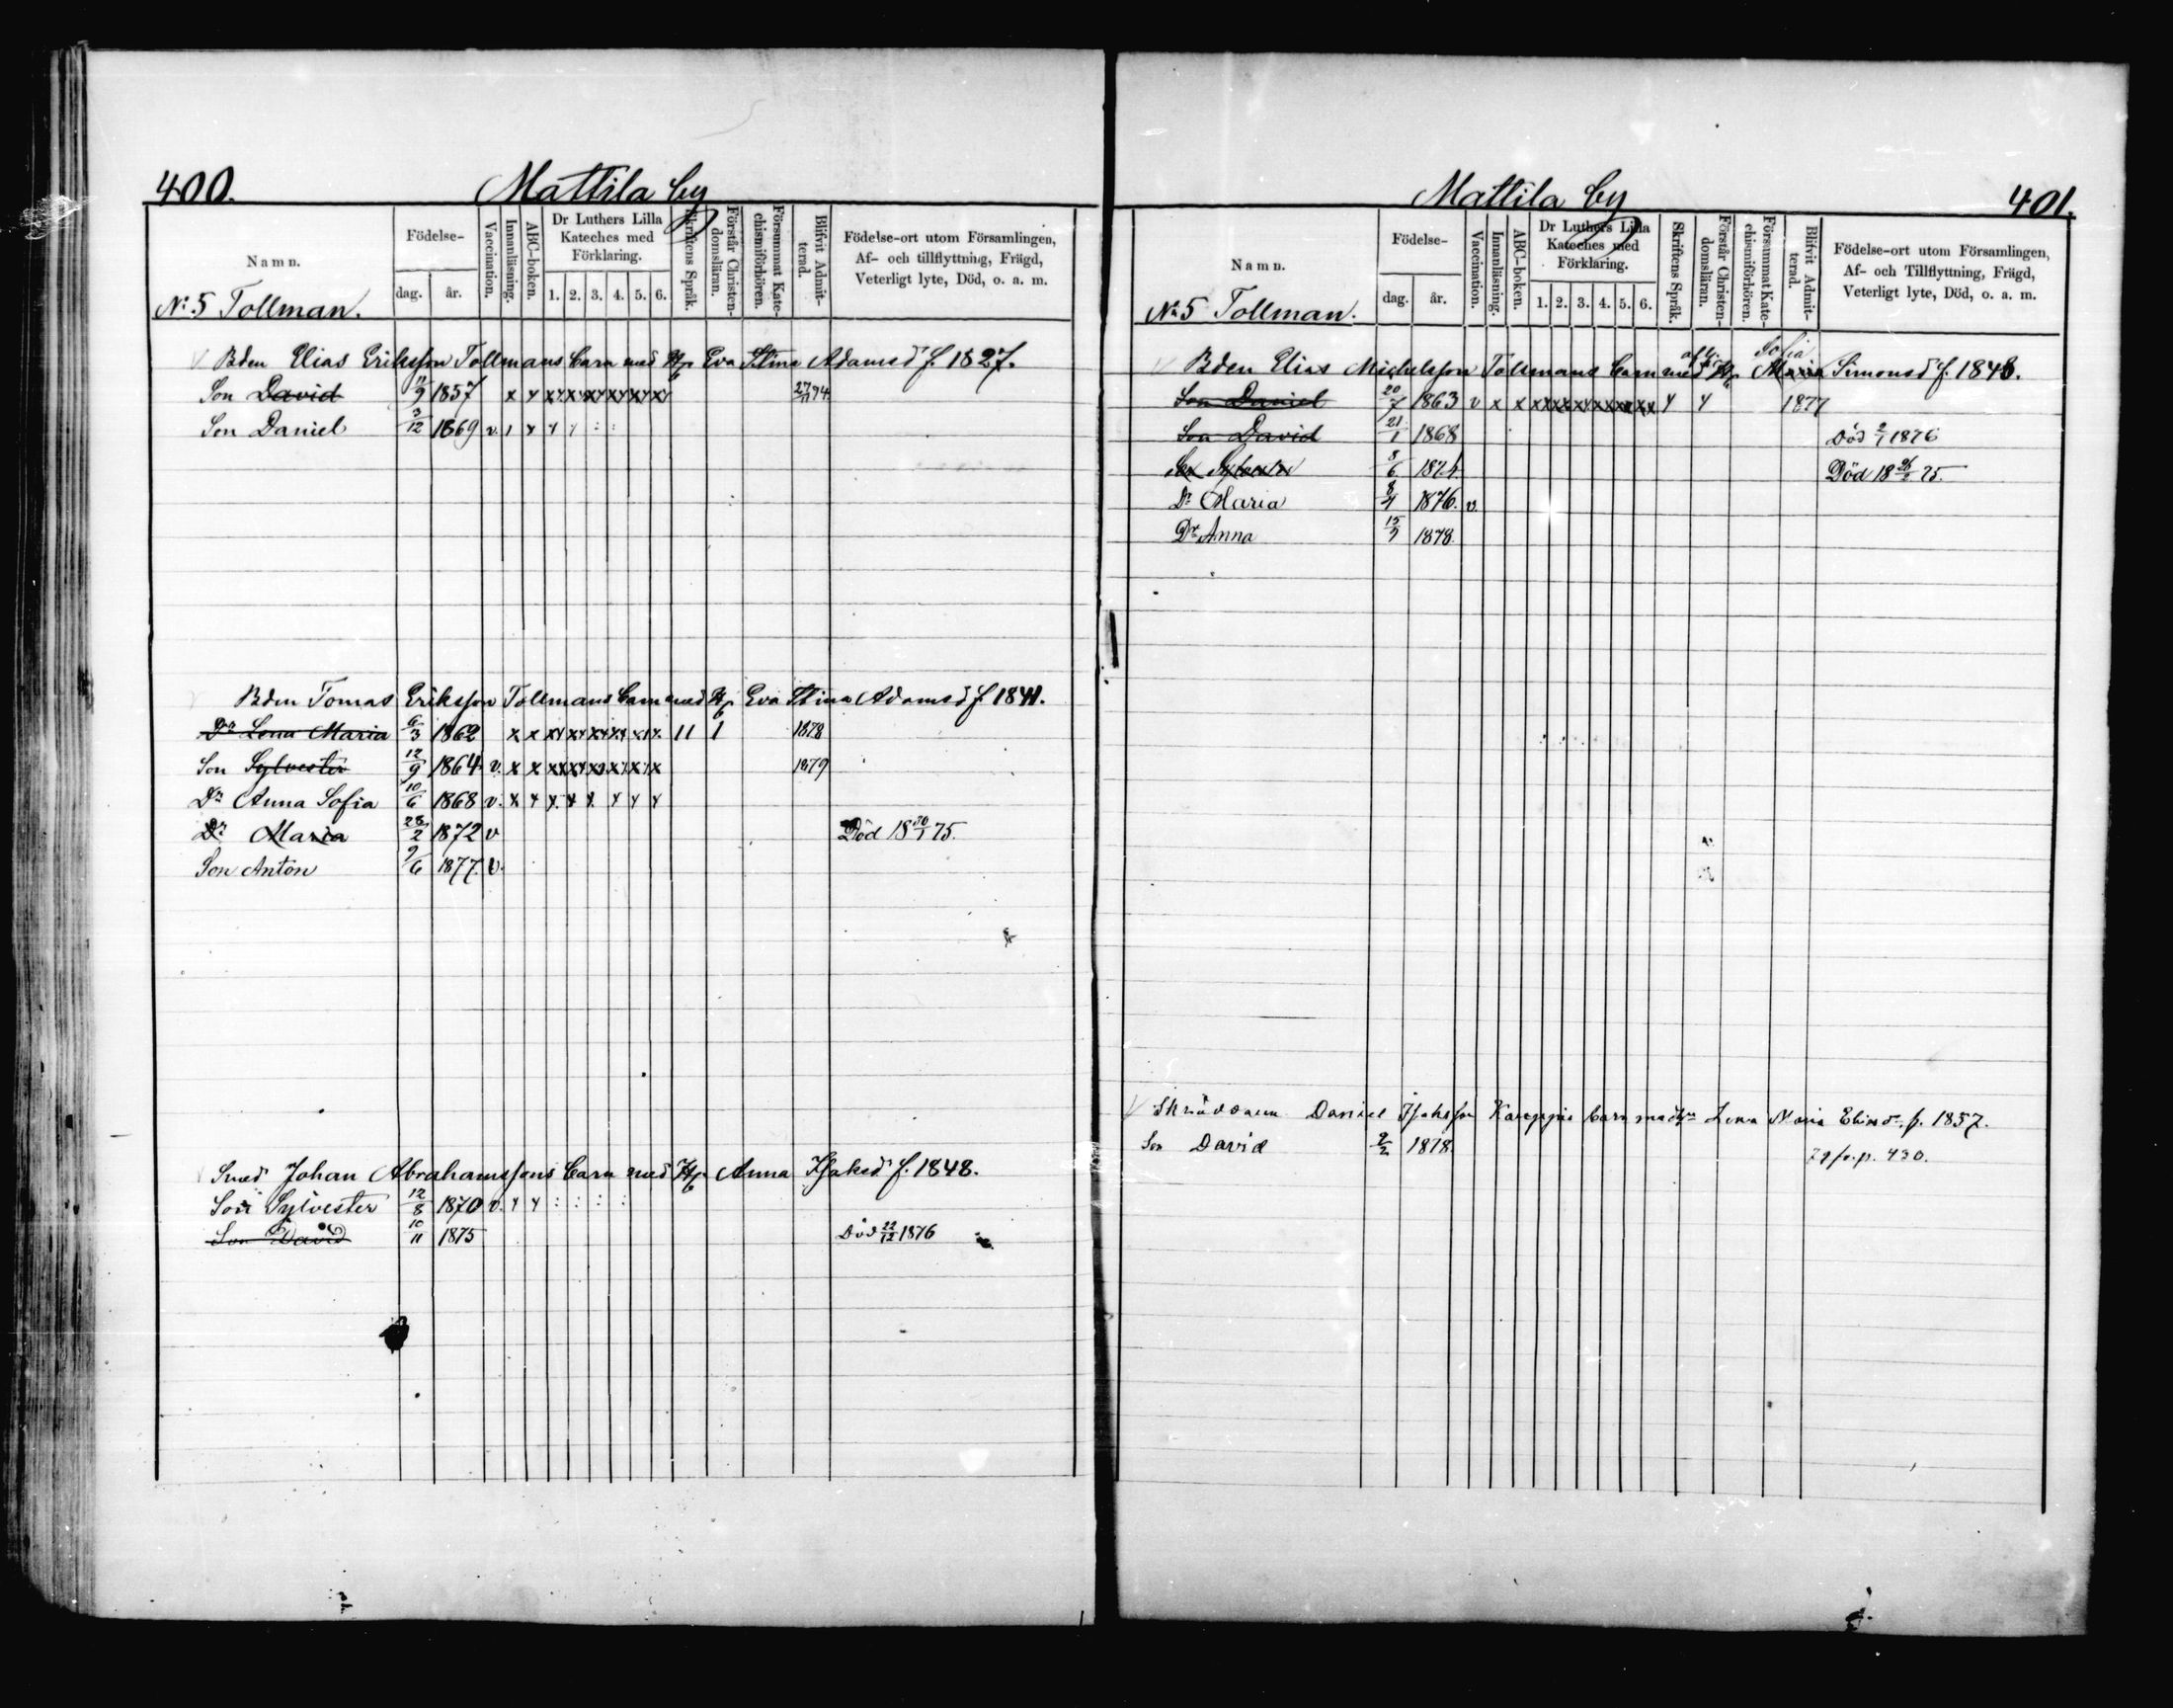 400. Mattila by
Namn. Födelse- dag. år. Vaccination. Innanläsning. ABC-boken. Dr Luthers Lilla Kateches med Förklaring. 1. 2. 3. 4. 5. 6. Skriftens Språk. Förstår Christendomsläran. Försummat Katechismiförhören. Blifvit Admitterad. Födelse-ort utom Församlingen, Af- och tillflyttning, Frägd, Veterligt lyte, Död, o. a. m.
No 5 Tollman.
Bden Elias Eriksson Tollmans barn med Hu Eva Stina Adamsd f. 1827.
Son David 11/9 1857 27/11 74
Son Daniel 3/12 1869 v.
Bden Tomas Eriksson Tollmans barn med Hu Eva Stina Adamsd f 1841.
Dr Lena Maria 6/3 1862 x x 11 1 1878
Son Sylvester 12/9 1864 v. x x 1879
Dr Anna Sofia 10/6 1868 v.
Dr Maria 28/2 1872 v Död 18 30/1 75.
Son Anton 9/6 1877. v.
Smed Johan Abrahamssons barn med Hu Anna Isaksd f. 1848.
Son Sylvester 12/8 1870 v.
Son David 10/11 1875 Död 22/12 1876
Mattila by 401.
Namn. Födelse- dag. år. Vaccination. Innanläsning. ABC-boken. Dr Luthers Lilla Kateches med Förklaring. 1. 2. 3. 4. 5. 6. Skriftens Språk. Förstår Christendomsläran. Försummat Katechismiförhören. Blifvit Admitterad. Födelse-ort utom Församlingen, Af- och Tillflyttning, Frägd, Veterligt lyte, Död, o. a. m.
No 5 Tollman.
Sofia
Bden Elias Michelsson Tollmans barn med Hu Maria Simonsd f. 1848.
Son Daniel 20/7 1863 v x x 1877
Son David 21/1 1868 Död 2/1 1876
Son Sylvester 8/6 1874 Död 18 26/2 75.
Dr Maria 8/4 1876. v.
Dr Anna 15/7 1878.
Skräddaren Daniel Isaksson Karppis barn med Hu Lena Maria Eliasd. f. 1857.
Son David 2/2 1878.
p. 430.